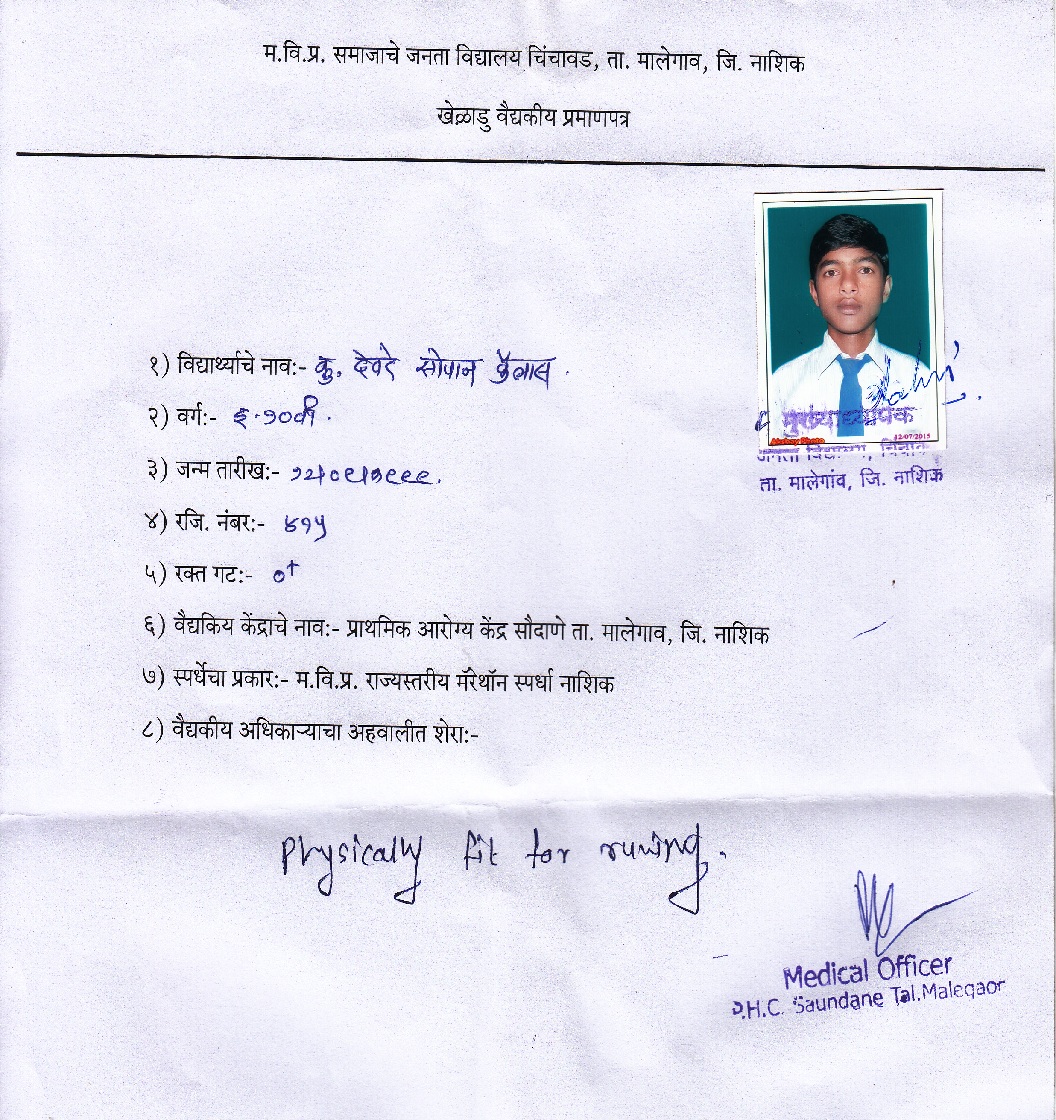 म.वि.प्र. समाजाचे जनता विद्यालय चिंचावड, ता. मालेगाव, जि. नाशिक
खेळाडु वैद्यकीय प्रमाणपत्र
१) विद्यार्थ्याचे नाव:- कु. देवरे सोपान कैलास .
२) वर्ग:- इ.१०वी .
मुख्याध्यापक
12/07/2015
३) जन्म तारीख:-
जनता विद्यालय, चिंचावड
ता. मालेगांव, जि. नाशिक
४) रजि. नंबर:- ४१५
५) रक्त गट:- O+
६) वैद्यकिय केंद्राचे नाव:- प्राथमिक आरोग्य केंद्र सौदाणे ता. मालेगाव, जि. नाशिक
७) स्पर्धेचा प्रकार:- म.वि.प्र. राज्यस्तरीय मॅरेथॉन स्पर्धा नाशिक
८) वैद्यकीय अधिकाऱ्याचा अहवालीत शेरा:-
Physically fit for runing.
Medical Officer
P.H.C. Saundane Tal.Malegaor